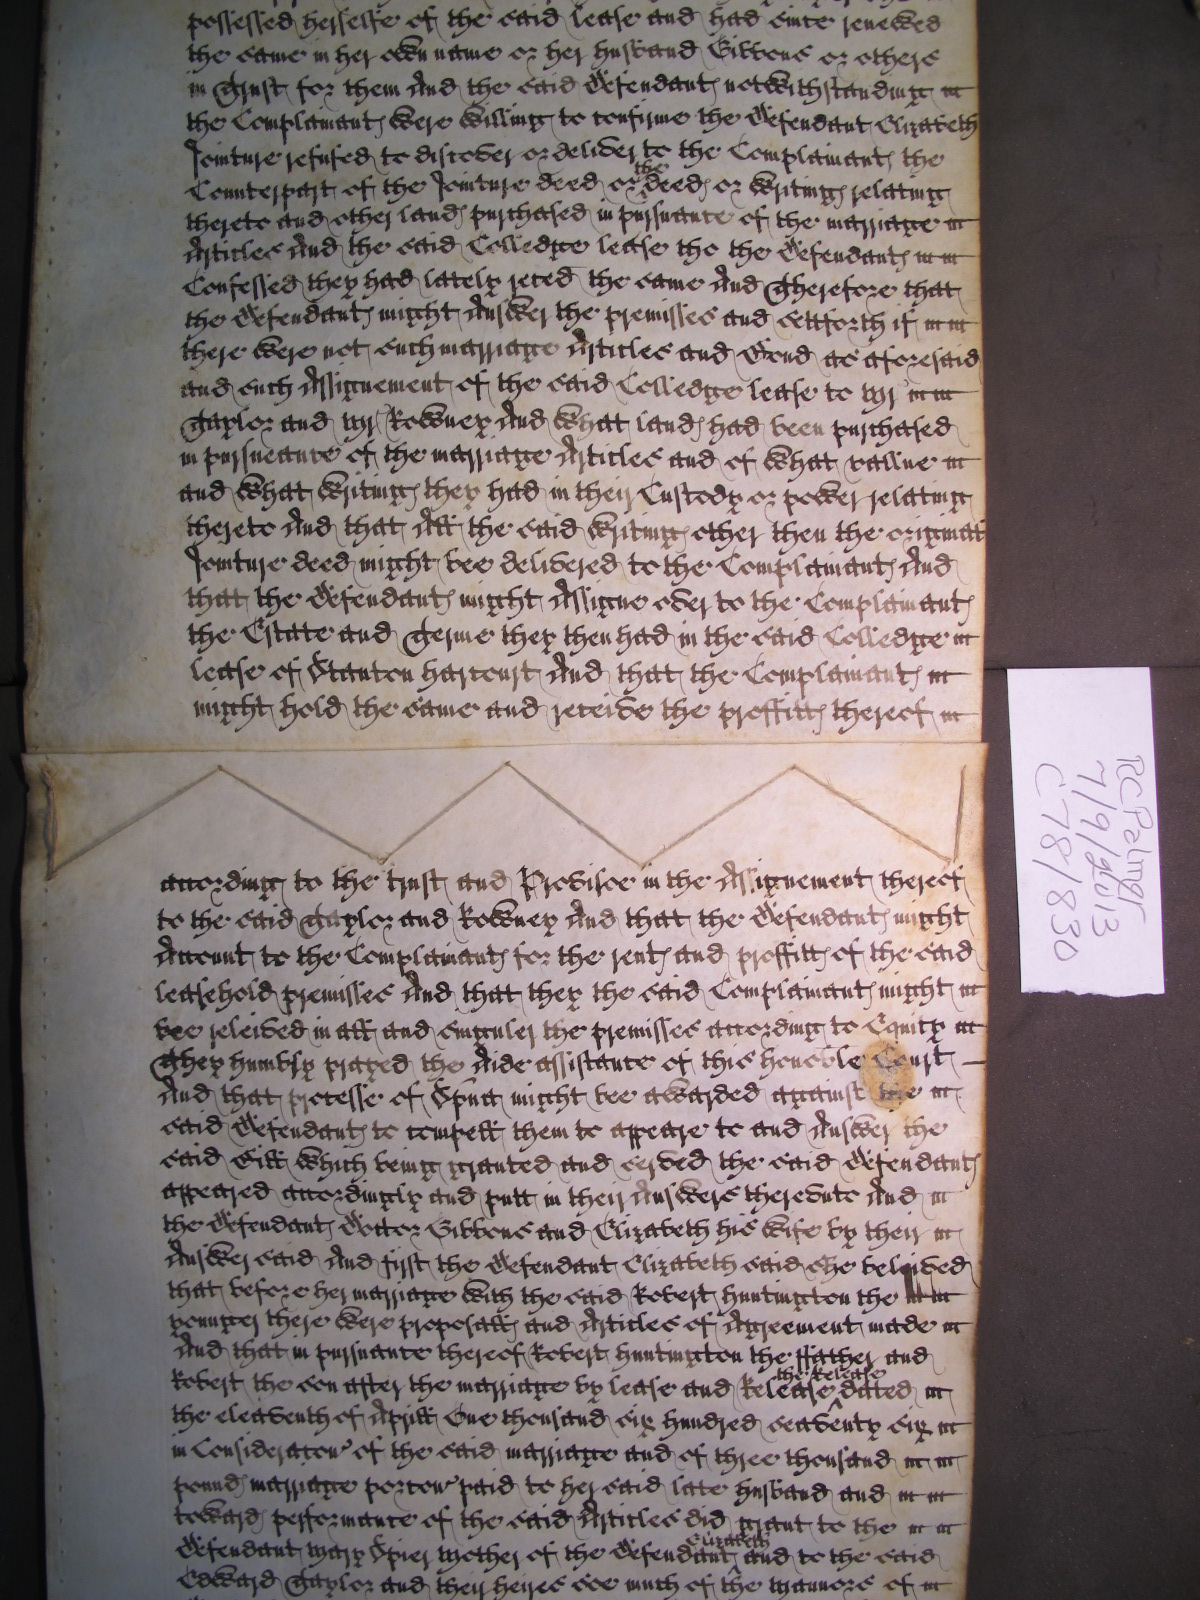 possessed herselfe of the said lease and had since renewed
the same in her own name or her husband Gibbons or others
in Trust for them And the said Defendants notwithstanding
the Complainants were willing to confirme the Defendant Elizabeth
Jointure refused to discover or deliver to the Complainants the
Counterpart of the Jointure deed or the deeds or writings relating
thereto and other lands purchased in pursuance of the marriage
Articles And the said Colledge lease tho the Defendants
Confessed they had lately reced the same And Therefore that
the Defendants might Answer the premisses and settforth if
there were not such marriage Articles and Bond as aforesaid
and such Assignement of the said Colledge lease to Mr
Taylor and Mr Rowney And what lands had been purchased
in pursueance of the marriage Articles and of what vallue
and what writings they had in their Custody or power relating
thereto And that All the said writings other then the originall
Jointure deed might bee delivered to the Complainants And
that the Defendants might Assigne over to the Complainants
the Estate and Terme they then had in the said Colledge
lease of Stanton harcourt And that the Complainants
might hold the same and receive the proffitts thereof
according to the trust and Provisoe in the Assignement thereof
to the said Taylor and Rowney And that the Defendants might
Account to the Complainants for the rents and proffitts of the said
leasehold premisses And that they the said Complainants might
bee releived in all and singuler the premisses according to Equity
They humbly prayed the Aide assistance of this honoble Court
And that processe of Spna might bee awarded against the
said Defendants to compell them to appeare to and Answer the
said Bill which being granted and served the said Defendants
appeared accordingly and putt in their Answers thereunto And
the Defendants Doctor Gibbons and Elizabeth his wife by their
Answer said And first the Defendant Elizabeth said she beleived
that before her marriage with the said Robert huntington the
younger there were proposalls and Articles of Agreement made
And that in pursuance thereof Robert huntington the ffather and
Robert the son after the marriage by lease and Release the Release dated
the eleaventh of Aprill One thousand six hundred seaventy six
in Consideracon of the said marriage and of three thousand
pounds marriage porcon paid to her said late husband and
toward performance of the said Articles did grant to the
Defendant Mary Spier mother of the Defendant Elizabeth and to the said
Edward Taylor and their heires soe much of the Mannors of
RC Palmer
7/9/2013
C78/830